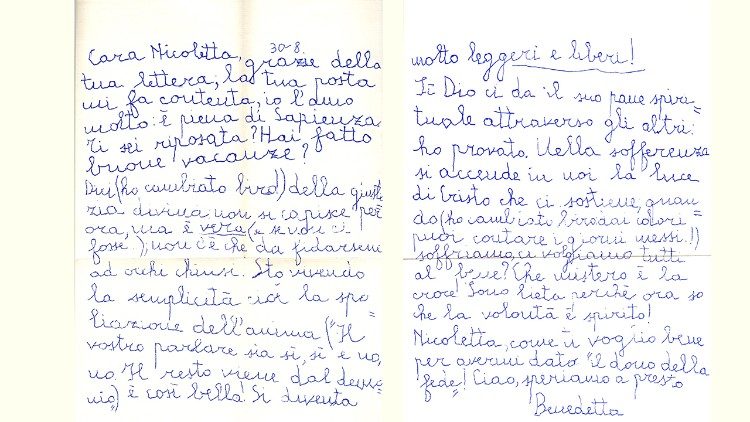 30-8.
Cara Nicoletta, grazie della
tua lettera; la tua posta
mi fa contenta, io l'amo
molto: è piena di Sapienza
Ti sei riposata? Hai fatto
buone vacanze?
Dici (ho cambiato biro!) della giusti
zia divina non si capisce per
ora, ma è vera (se non ci
fosse..); non c'è che da fidarsene
ad occhi chiusi. Sto vivendo
la semplicità cioè la spo=
liazione dell'anima ("Il
vostro parlare sia sì, sì e no,
no. Il resto viene dal demo=
nio) è così bella! Si diventa
molto leggeri e liberi!
Sì Dio ci da il suo pane spiri=
tuale attraverso gli altri:
ho provato. Nella sofferenza
si accende in noi la luce
di Cristo che ci sostiene, quan=
do (ho cambiato biro dai colori
puoi contare i giorni messi!!)
soffriamo, vogliamo tutti
al bene? Che mistero è la
croce! Sono lieta perché ora so
che la volontà è spirito!
Nicoletta, come ti voglio bene
per avermi dato "il dono della
fede"! Ciao, speriamo a presto
Benedetta